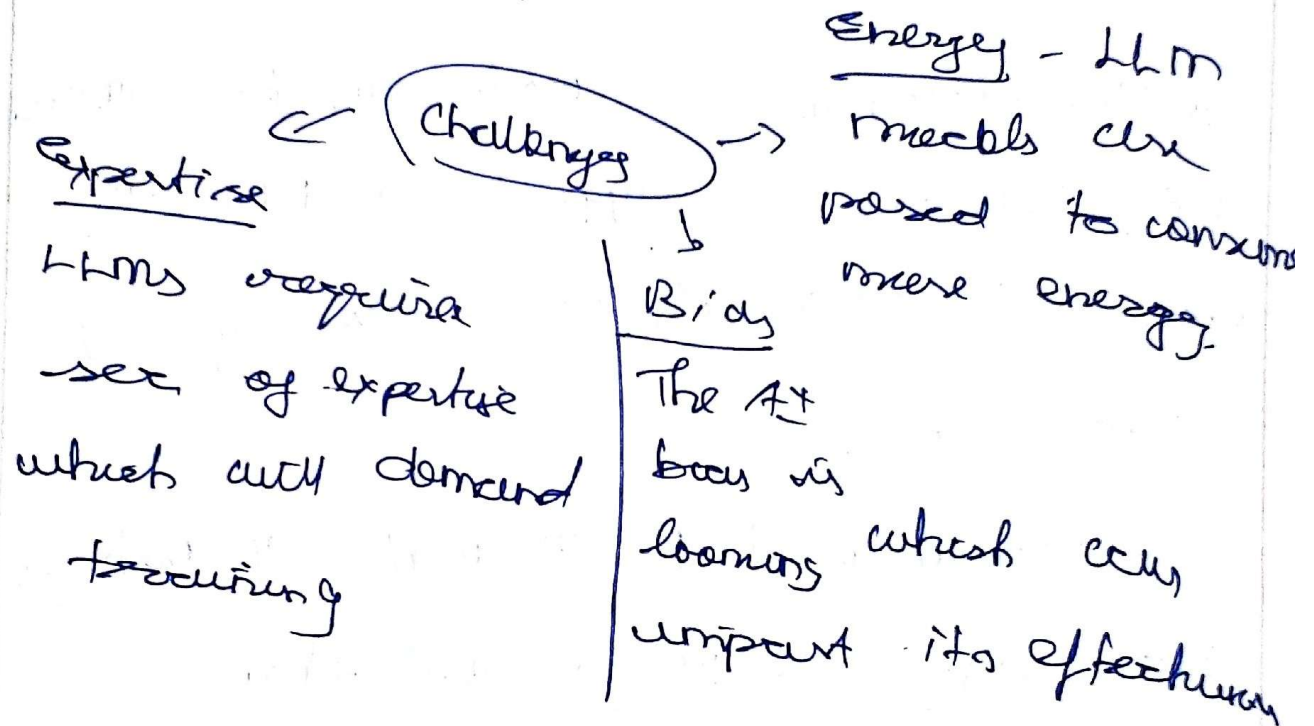 Challenges
Expertise
LLMs require
set of expertise
which will demand
training
Bias
The AI
bias is
looming which can
impact its effectiveness
Energy - LLM
models are
posed to consume
more energy.